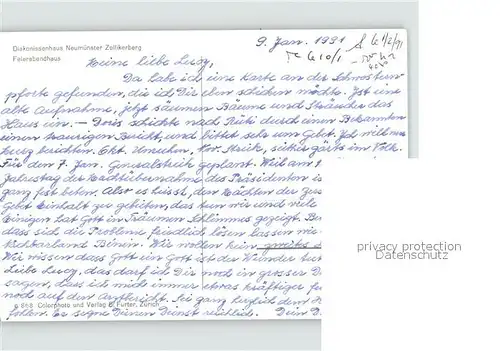 Diakonissenhaus Neumünster Zollikerberg
Feierabendhaus
9. Jan. 1991
Meine liebe Lucy,
Da habe ich eine Karte an der Schwestern-
pforte gefunden, die ich Dir eben schicken möchte. Ist eine
alte Aufnahme, jetzt säumen Bäume und Sträucher das
Haus ein. – Doris schickte nach Rüti durch einen Bekannten
einen traurigen Bericht, und bittet sehr um Gebet. Ich will nur
kurz berichten. Okt. Unruhen, Nov. Streik, seither gärts im Volk.
Für den 7. Jan. Generalstreik geplant. Weil am
Jahrestag der Machtübernahme des Präsidenten is
ganz fest beten. Aber es heisst, den Mächten der
Gebet Einhalt zu gebieten, das tun wir und viele
Einigen hat Gott in Träumen Schlimmes gezeigt. Be
dass sich die Probleme friedlich lösen lassen
Wir wollen kein zweites
Wir wissen dass Gott ein Gott ist der Wunder tut
Liebe Lucy, das darf ich Dir noch in grosser D
sagen, dass ich mich immer etwas kräftiger
noch auf den Arztbericht. Sei ganz herzlich dem
Er segne Deinen Dienst reichlich. Dein D
658 Colorphoto und Verlag B. Furter, Zürich
privacy protection
Datenschutz